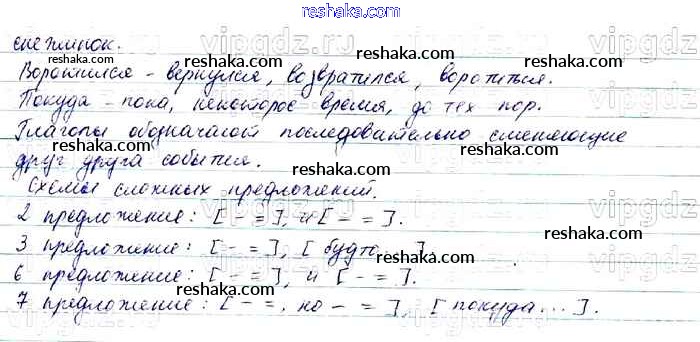 reshaka.com
снежинок.
Воротился - вернулся, возвратился, воротиться.
Покуда - пока, некоторое время, до тех пор.
Глаголы обозначают последовательно сменяющие
друг друга события.
Схемы сложных предложений.
2 предложение: [ - = ], и [ - = ].
3 предложение: [ - = ], [ будто... ].
6 предложение: [ - = ], и [ - = ].
7 предложение: [ - =, но - = ], [ покуда... ].